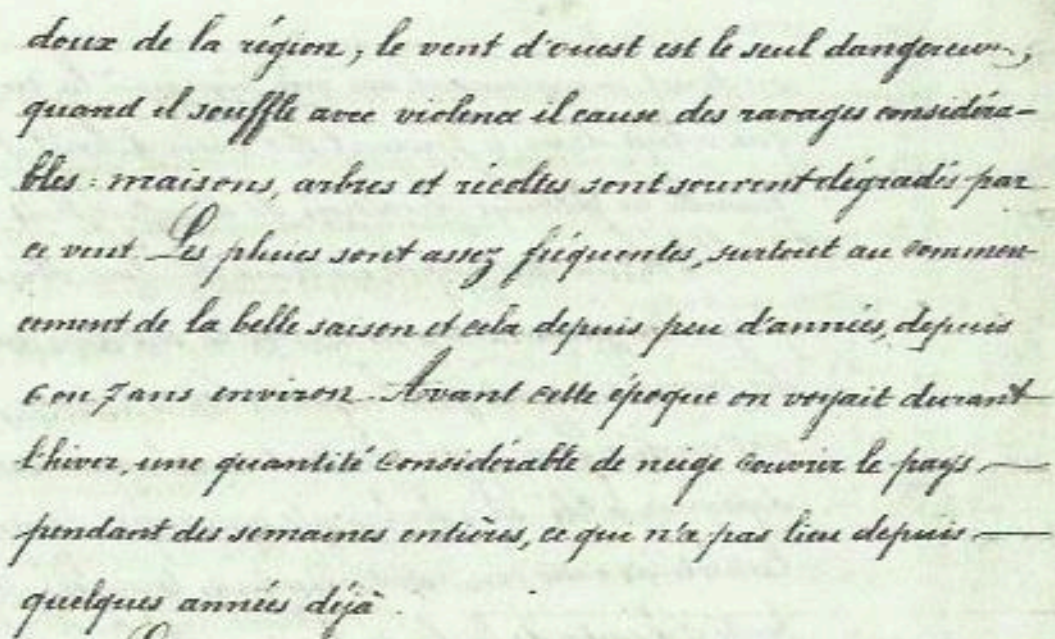 doux de la région, le vent d'ouest est le seul dangereux,
quand il souffle avec violence il cause des ravages considéra-
bles : maisons, arbres et récoltes sont souvent dégradés par
ce vent. Les pluies sont assez fréquentes, surtout au commen-
cement de la belle saison et cela depuis peu d'années, depuis
6 ou 7 ans environ. Avant cette époque on voyait durant
l'hiver, une quantité considérable de neige couvrir le pays
pendant des semaines entières, ce qui n'a pas lieu depuis
quelques années déjà.